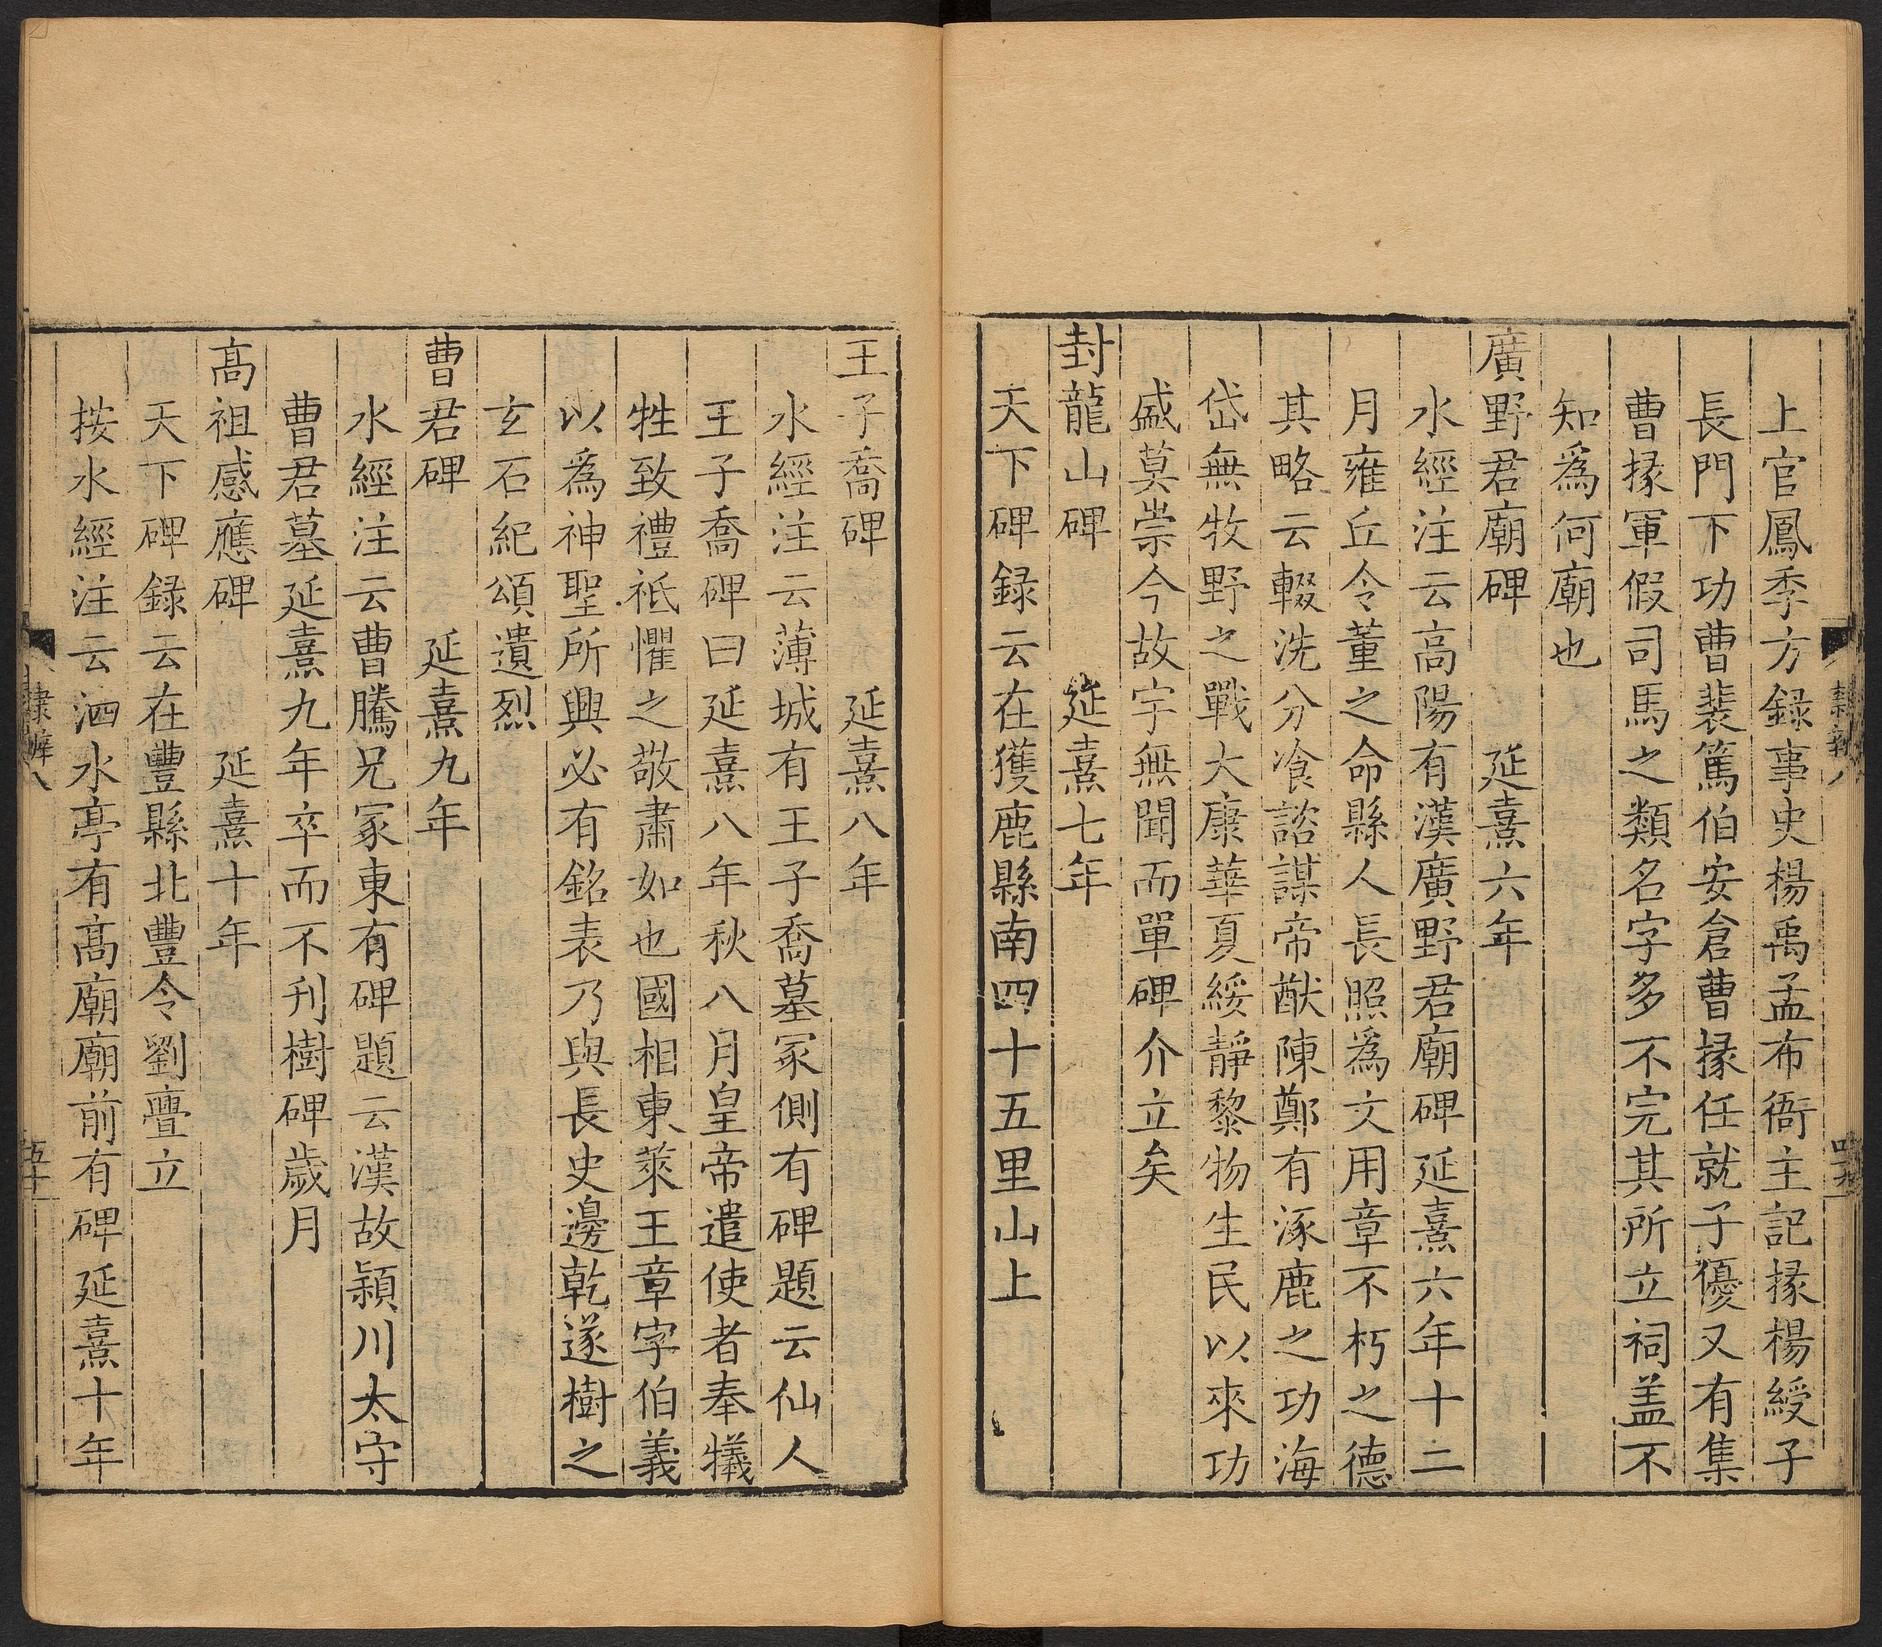 上官鳳季方録事史楊禹孟布衙主記掾楊綬子
長門下功曹裴篤伯安倉曹掾任就子優又有集
曹掾軍假司馬之類名字多不完其所立祠盖不
知爲何廟也
廣野君廟碑　延熹六年
水經注云高陽有漢廣野君廟碑延熹六年十二
月雍丘令董之命縣人長照爲文用章不朽之德
其略云輟洗分飡諮謀帝猷陳鄭有涿鹿之功海
岱無牧野之戰大康華夏綏靜黎物生民以來功
盛莫崇今故宇無聞而單碑介立矣
封龍山碑　延熹七年
天下碑録云在獲鹿縣南四十五里山上
隸辨八
王子喬碑　延熹八年
水經注云薄城有王子喬墓冢側有碑題云仙人
王子喬碑曰延熹八年秋八月皇帝遣使者奉犧
牲致禮祇懼之敬肅如也國相東萊王章字伯義
以爲神聖所興必有銘表乃與長史邊乾遂樹之
玄石紀頌遺烈
曹君碑　延熹九年
水經注云曹騰兄冢東有碑題云漢故潁川太守
曹君墓延熹九年卒而不刊樹碑歲月
高祖感應碑　延熹十年
天下碑録云在豐縣北豐令劉亹立
按水經注云泗水亭有高廟廟前有碑延熹十年
隸辨八